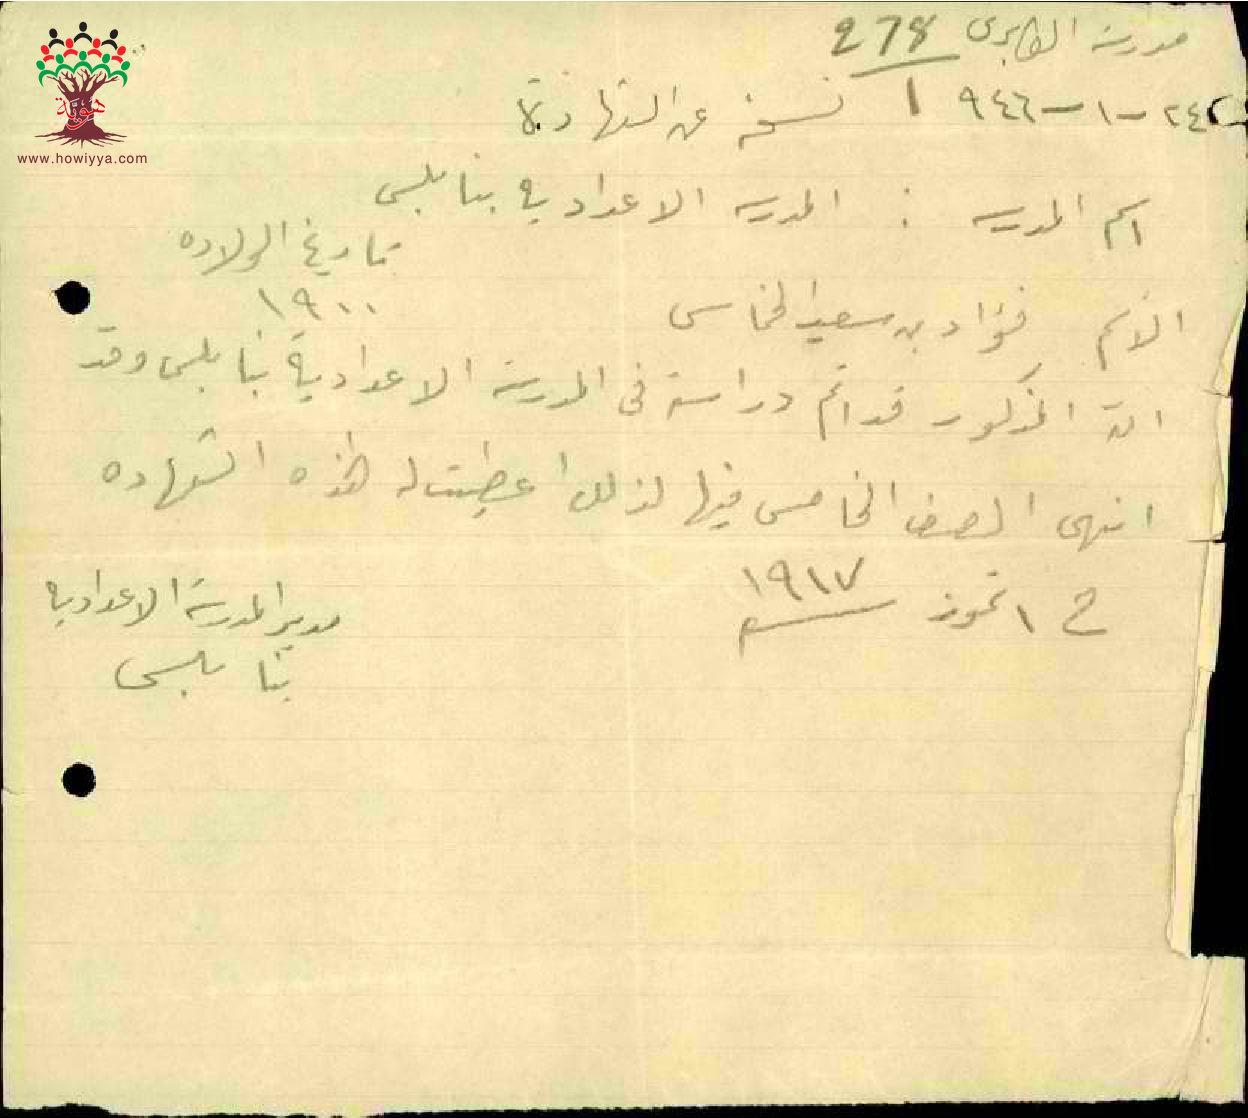 هوية
www.howiyya.com
مدرسة
278
٢٤-١-٩٤٦ نسخة عن الشهادة
اسم المدرسه : المدرسه الاعداديه بنابلس
تاريخ الولاده
١٩٠٠
الاسم فؤاد بن سعيد الخماسى
انه المذكور قد اتم دراسته فى المدرسة الاعدادية بنابلس وقد
انهى الصف الخامس فيها لذلك اعطيت له هذه الشهاده
١ تموز ١٩١٧
مدير المدرسة الاعداديه
بنابلس